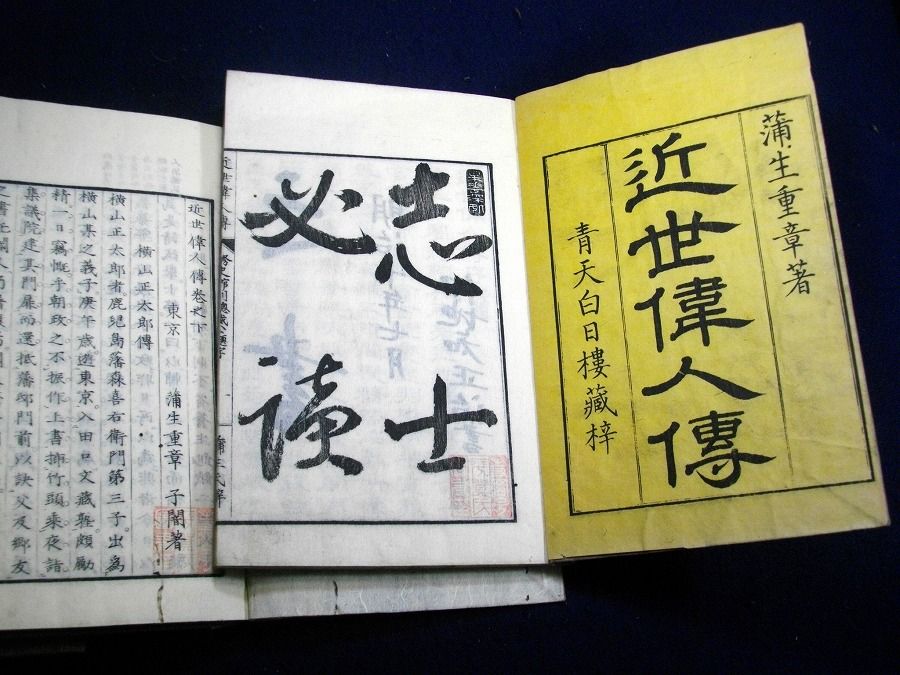 蒲生重章著
近世偉人傳
青天白日樓藏梓
志士
必讀
近世偉人傳卷之下
東京 蒲生重章 子闇著
橫山正太郎傳
橫山正太郎者鹿兒島藩森喜右衛門第三子。出為
橫山某之義子庚午歲遊東京入田口文藏塾頗勵
精一日竊慨于朝政之不振作上書挿竹頭乘夜詣
集議院建其門扉而還抵藩邸門前以訣父及鄉友